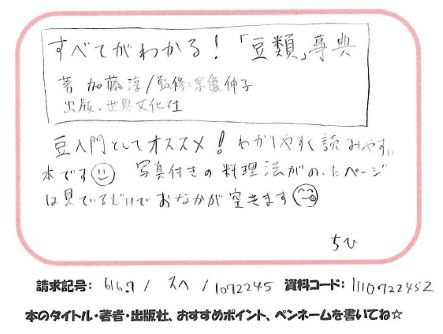 すべてがわかる!「豆類」事典
著 加藤淳/監修:宗像伸子
出版.世界文化社
豆入門としてオススメ!わかりやすく読みやすい
本です 写真付きの料理法がのったページ
は見ているだけでおなかが空きます
ちひ
請求記号: 616.7/ スベ /1092245 資料コード: 1110922452
本のタイトル・著者・出版社、おすすめポイント、ペンネームを書いてね☆